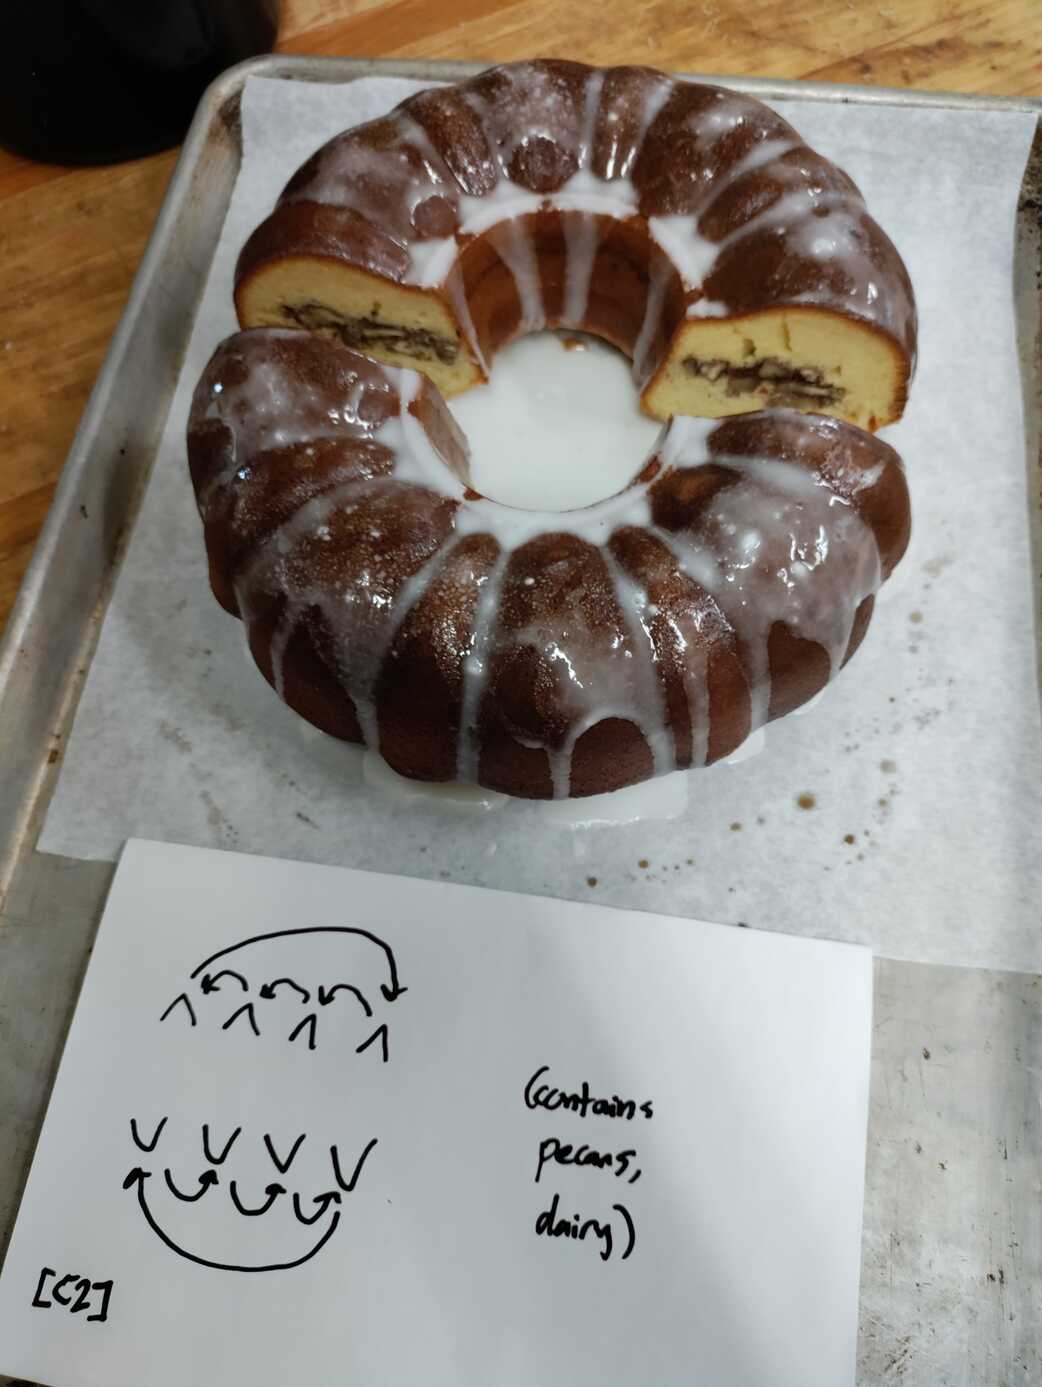 (contains
pecans,
dairy)
[C2]